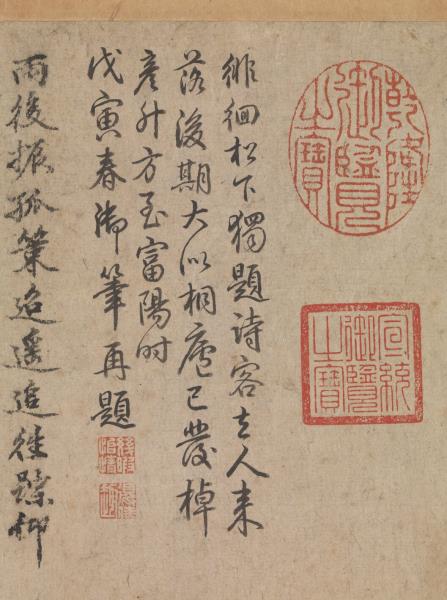 乾隆
御覽
之寶
宣統
御覽
之寶
徘徊松下獨題詩客去人来
落後期大似桐廬已發棹
彦升方至富陽時
戊寅春御筆再題
雨後振孤策迢遥追往蹤仰